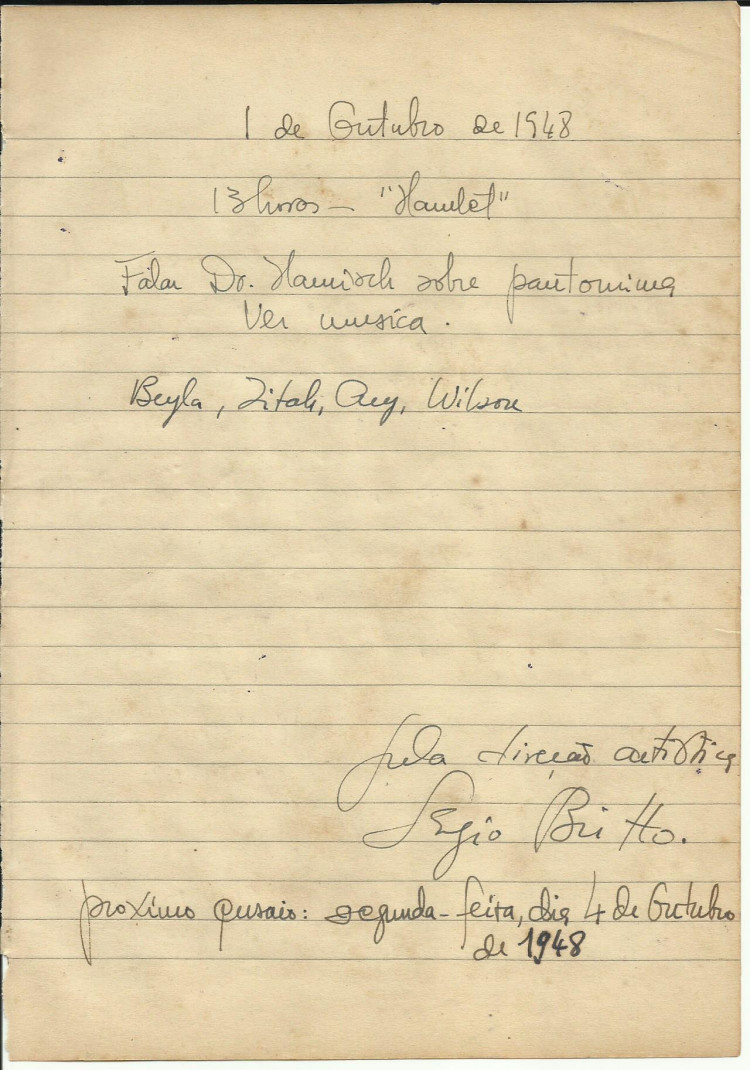 1 de Outubro de 1948
13 horas - "Hamlet"
Falar Dr. Hamisch sobre pantomima
Ver musica.
Beyla, Zitah, Ary, Wilson
pela direcao artistica
Sergio Britto.
proximo ensaio: segunda-feira, dia 4 de Outubro
de 1948